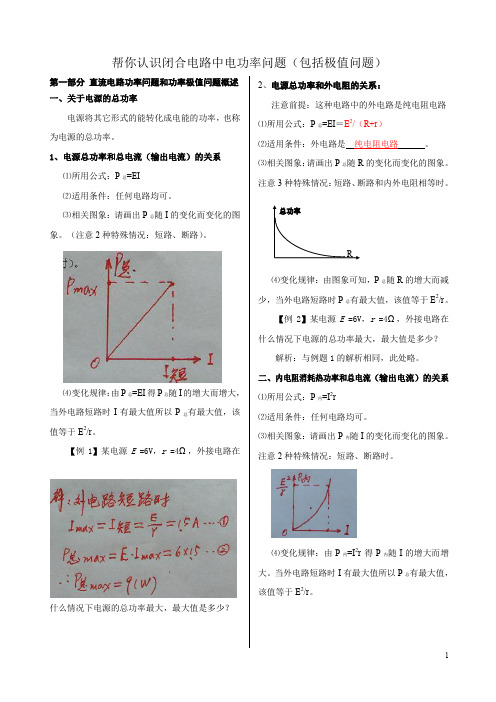 帮你认识闭合电路中电功率问题（包括极值问题）
第一部分 直流电路功率问题和功率极值问题概述
一、关于电源的总功率
电源将其它形式的能转化成电能的功率，也称
为电源的总功率。
1、电源总功率和总电流（输出电流）的关系
⑴所用公式：P总=EI
⑵适用条件：任何电路均可。
⑶相关图象：请画出 P总随 I 的变化而变化的图
象。（注意 2 种特殊情况：短路、断路）。
时)。
P总
Pmax
O
I短
I
⑷变化规律：由 P总=EI 得 P总随 I 的增大而增大，
当外电路短路时 I 有最大值所以 P总有最大值，该
值等于 E²/r。
【例 1】某电源 E =6V，r =4Ω，外接电路在
解：当外电路短路时
Imax=I短=E/r=1.5A…①
P总max=E·Imax=6×1.5…②
∴P总max=9(W)
什么情况下电源的总功率最大，最大值是多少？
2、电源总功率和外电阻的关系：
注意前提：这种电路中的外电路是纯电阻电路
⑴所用公式：P总=EI＝E²/（R+r）
⑵适用条件：外电路是 纯电阻电路 。
⑶相关图象：请画出 P总随 R 的变化而变化的图象。
注意 3 种特殊情况：短路、断路和内外电阻相等时。
总功率
R
⑷变化规律：由图象可知，P总随 R 的增大而减
少，当外电路短路时 P总有最大值，该值等于 E²/r。
【例 2】某电源 E =6V，r =4Ω，外接电路在
什么情况下电源的总功率最大，最大值是多少？
解析：与例题 1 的解析相同，此处略。
二、内电阻消耗热功率和总电流（输出电流）的关系
⑴所用公式：P内=I²r
⑵适用条件：任何电路均可。
⑶相关图象：请画出 P内随 I 的变化而变化的图象。
注意 2 种特殊情况：短路、断路时。
E²/r
P内
O
I
⑷变化规律：由 P内=I²r 得 P内随 I 的增大而增
大。当外电路短路时 I 有最大值所以 P总有最大值，
该值等于 E²/r。
1